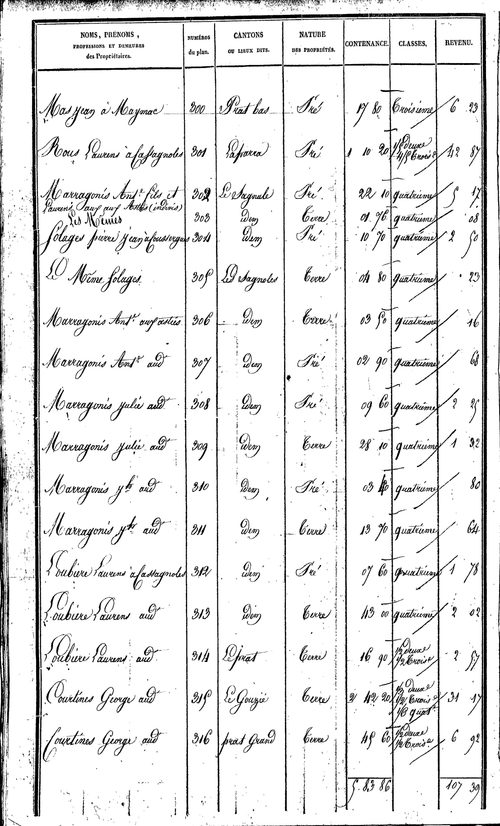 NOMS, PRÉNOMS, PROFESSIONS ET DEMEURES des Propriétaires. NUMÉROS du plan. CANTONS OU LIEUX DITS. NATURE DES PROPRIÉTÉS. CONTENANCE. CLASSES. REVENU.
Mas jean à Maymac 300 Prat bas Pré 17 80 Troisième 6 23
Rous Laurens à Cassagnoles 301 Laparra Pré 1 10 20 1/2 deuxe 1/2 Troise 42 87
Marragonis Ante fils et 302 Le Sagnale Pré 22 10 quatrième 5 17
Laurens
Les Mêmes 303 idem Terre 01 76 quatrième 08
Solages pierre jean à 304 idem Pré 10 70 quatrième 2 50
Le Même Solages 305 Les Sagnoles Terre 04 80 quatrième 23
Marragonis Ante 306 idem Terre 03 50 quatrième 16
Marragonis Ante aud 307 idem Pré 02 90 quatrième 68
Marragonis julie aud 308 idem Pré 09 60 quatrième 2 25
Marragonis julie aud 309 idem Terre 28 10 quatrième 1 32
Marragonis aud 310 idem Pré 03 40 quatrième 80
Marragonis aud 311 idem Terre 13 70 quatrième 64
Loubière Laurens à Cassagnoles 312 idem Pré 07 60 quatrième 1 78
Loubière Laurens aud 313 idem Terre 43 00 quatrième 2 02
Loubière Laurens aud 314 Le prat Terre 16 90 1/2 deuxe 1/2 Troise 2 57
Courtines George aud 315 Le Gouzié Terre 2 42 20 1/2 deuxe 1/2 Troise quate 31 17
Courtines George aud 316 prat Grand Terre 45 60 1/2 deuxe 1/2 Troise 6 92
5 83 86 107 39